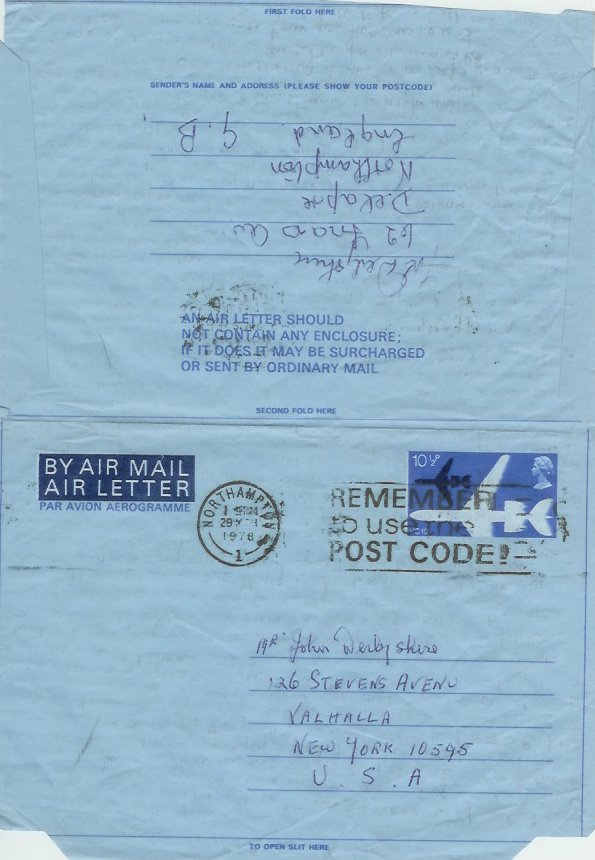 FIRST FOLD HERE
SENDER'S NAME AND ADDRESS (PLEASE SHOW YOUR POSTCODE)
Derbyshire
62
Delapre
Northampton
England. G.B
AN AIR LETTER SHOULD
NOT CONTAIN ANY ENCLOSURE;
IF IT DOES IT MAY BE SURCHARGED
OR SENT BY ORDINARY MAIL
SECOND FOLD HERE
BY AIR MAIL
AIR LETTER
PAR AVION AEROGRAMME
10½P
NORTHAMPTON
1978
1
REMEMBER
to use the
POST CODE!
Mr John Derbyshire
126 STEVENS AVENU
VALHALLA
NEW YORK 10595
U. S. A
TO OPEN SLIT HERE